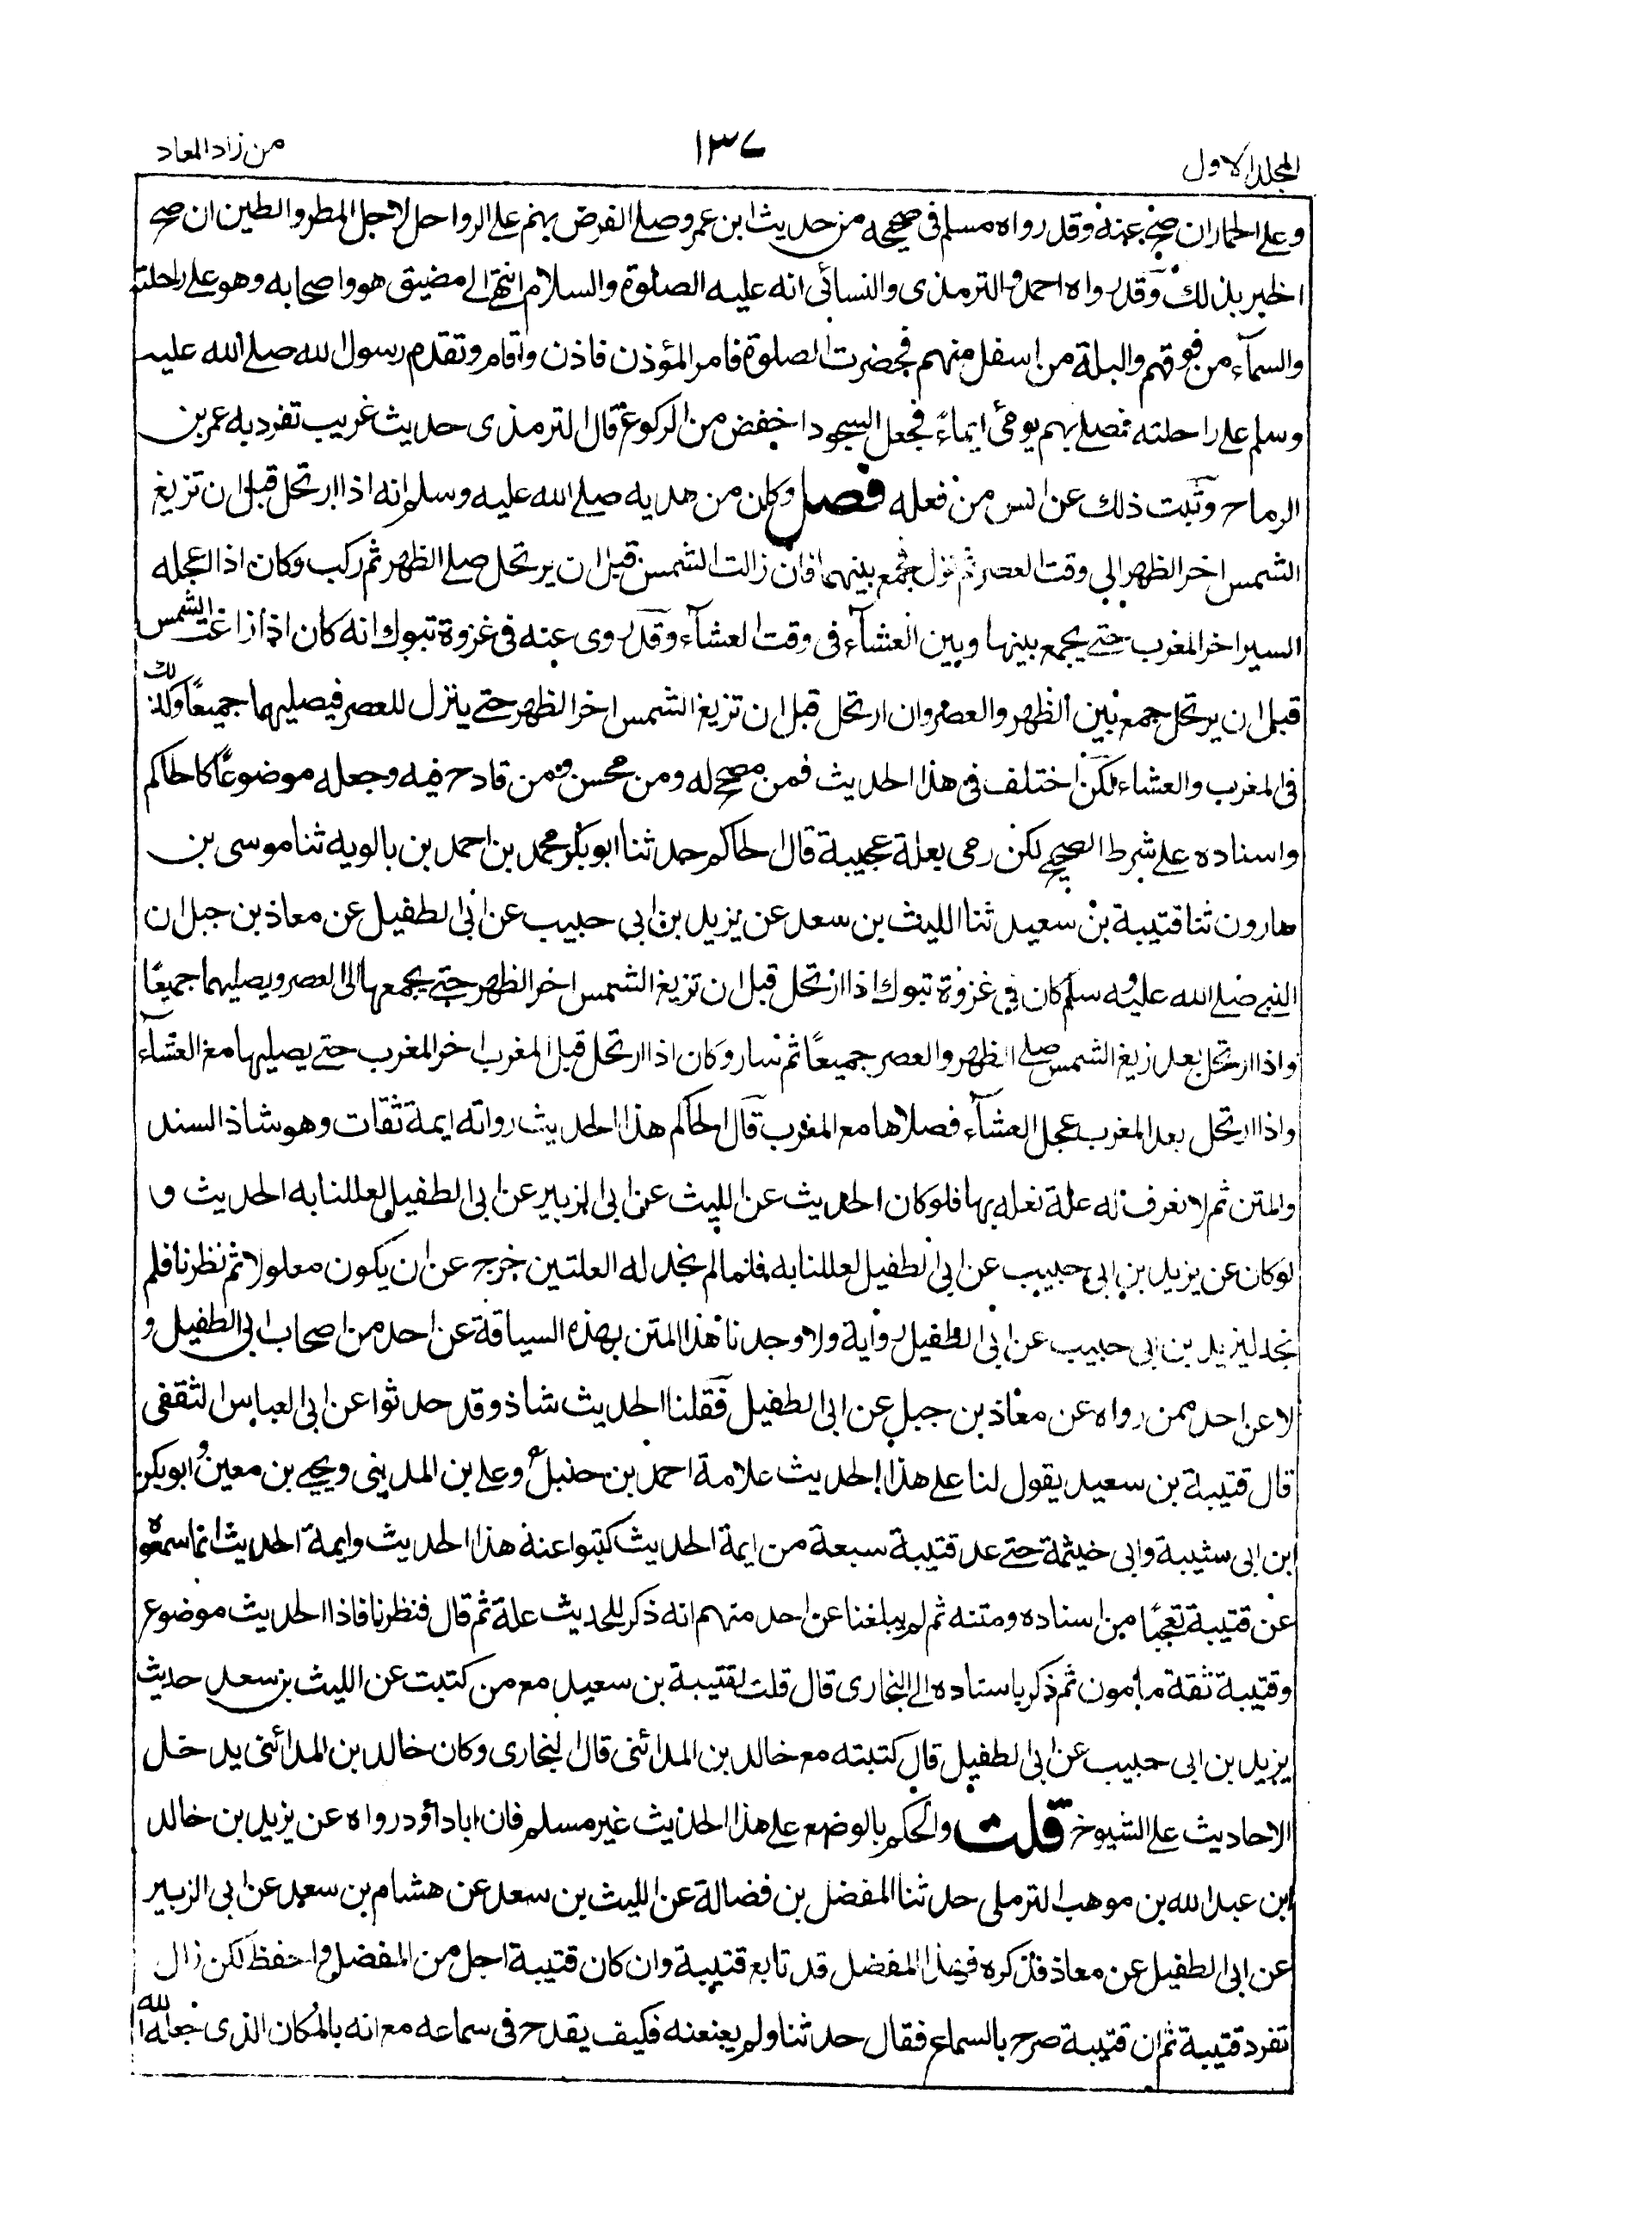 المجلد الاول
١٣٧
من زاد المعاد
وعلى الحمار ان صح عنه وقد رواه مسلم فى صحيحه من حديث ابن عمر وصلى الفرض بهم على الرواحل لاجل المطر والطين ان صح
الخبر بذلك وقد رواه احمد والترمذى والنسائى انه عليه الصلوة والسلام انتهى الى مضيق هو واصحابه وهو على راحلته
والسمآء من فوقهم والبلة من اسفل منهم فحضرت الصلوة فامر المؤذن فاذن واقام وتقدم رسول الله صلى الله عليه
وسلم على راحلته فصلى بهم يومئ ايماءً فجعل السجود اخفض من الركوع قال الترمذى حديث غريب تفرد به عمر بن
الرماح وثبت ذلك عن انس من فعله فصل وكان من هديه صلى الله عليه وسلم انه اذا ارتحل قبل ان تزيغ
الشمس اخر الظهر الى وقت العصر ثم نزل فجمع بينهما فان زالت الشمس قبل ان يرتحل صلى الظهر ثم ركب وكان اذا اعجله
السير اخر المغرب حتى يجمع بينها وبين العشآء فى وقت العشآء وقد روى عنه فى غزوة تبوك انه كان اذا زاغت الشمس
قبل ان يرتحل جمع بين الظهر والعصر وان ارتحل قبل ان تزيغ الشمس اخر الظهر حتى ينزل للعصر فيصليهما جميعًا وكذلك
فى المغرب والعشاء لكن اختلف فى هذا الحديث فمن مصحح له ومن محسن ومن قادح فيه وجعله موضوعًا كالحاكم
واسناده على شرط الصحيح لكن رمى بعلة عجيبة قال الحاكم حدثنا ابو بكر محمد بن احمد بن بالويه ثنا موسى بن
هارون ثنا قتيبة بن سعيد ثنا الليث بن سعد عن يزيد بن ابى حبيب عن ابى الطفيل عن معاذ بن جبل ان
النبى صلى الله عليه وسلم كان فى غزوة تبوك اذا ارتحل قبل ان تزيغ الشمس اخر الظهر حتى يجمعها الى العصر ويصليهما جميعًا
واذا ارتحل بعد زيغ الشمس صلى الظهر والعصر جميعًا ثم سار وكان اذا ارتحل قبل المغرب اخر المغرب حتى يصليها مع العشآء
واذا ارتحل بعد المغرب عجل العشآء فصلاها مع المغرب قال الحاكم هذا الحديث رواته ايمة ثقات وهو شاذ السند
والمتن ثم لا نعرف له علة نعله بها فلو كان الحديث عن الليث عن ابى الزبير عن ابى الطفيل لعللنا به الحديث و
لو كان عن يزيد بن ابى حبيب عن ابى الطفيل لعللنا به فلما لم نجد له العلتين خرج عن ان يكون معلولا ثم نظرنا فلم
نجد ليزيد بن ابى حبيب عن ابى الطفيل رواية ولا وجدنا هذا المتن بهذه السياقة عن احد من اصحاب ابى الطفيل و
لا عن احد ممن رواه عن معاذ بن جبل عن ابى الطفيل فقلنا الحديث شاذ وقد حدثوا عن ابى العباس الثقفى
قال قتيبة بن سعيد يقول لنا على هذا الحديث علامة احمد بن حنبل وعلى بن المدينى ويحيى بن معين وابو بكر
ابن ابى شيبة وابى خيثمة حتى عد قتيبة سبعة من ايمة الحديث كتبوا عنه هذا الحديث وايمة الحديث انما سمعوه
عن قتيبة تعجبًا من اسناده ومتنه ثم لم يبلغنا عن احد منهم انه ذكر للحديث علة ثم قال فنظرنا فاذا الحديث موضوع
وقتيبة ثقة مامون ثم ذكر باسناده الى البخارى قال قلت لقتيبة بن سعيد مع من كتبت عن الليث بن سعد حديث
يزيد بن ابى حبيب عن ابى الطفيل قال كتبته مع خالد بن المدائنى قال البخارى وكان خالد بن المدائنى يدخل
الاحاديث على الشيوخ قلت والحكم بالوضع على هذا الحديث غير مسلم فان ابا داؤد رواه عن يزيد بن خالد
ابن عبد الله بن موهب الترملى حدثنا المفضل بن فضالة عن الليث بن سعد عن هشام بن سعد عن ابى الزبير
عن ابى الطفيل عن معاذ فذكره فهذا المفضل قد تابع قتيبة وان كان قتيبة اجل من المفضل واحفظ لكن زال
تفرد قتيبة ثم ان قتيبة صرح بالسماع فقال حدثنا ولم يعنعنه فكيف يقدح فى سماعه مع انه بالمكان الذى جعله الله